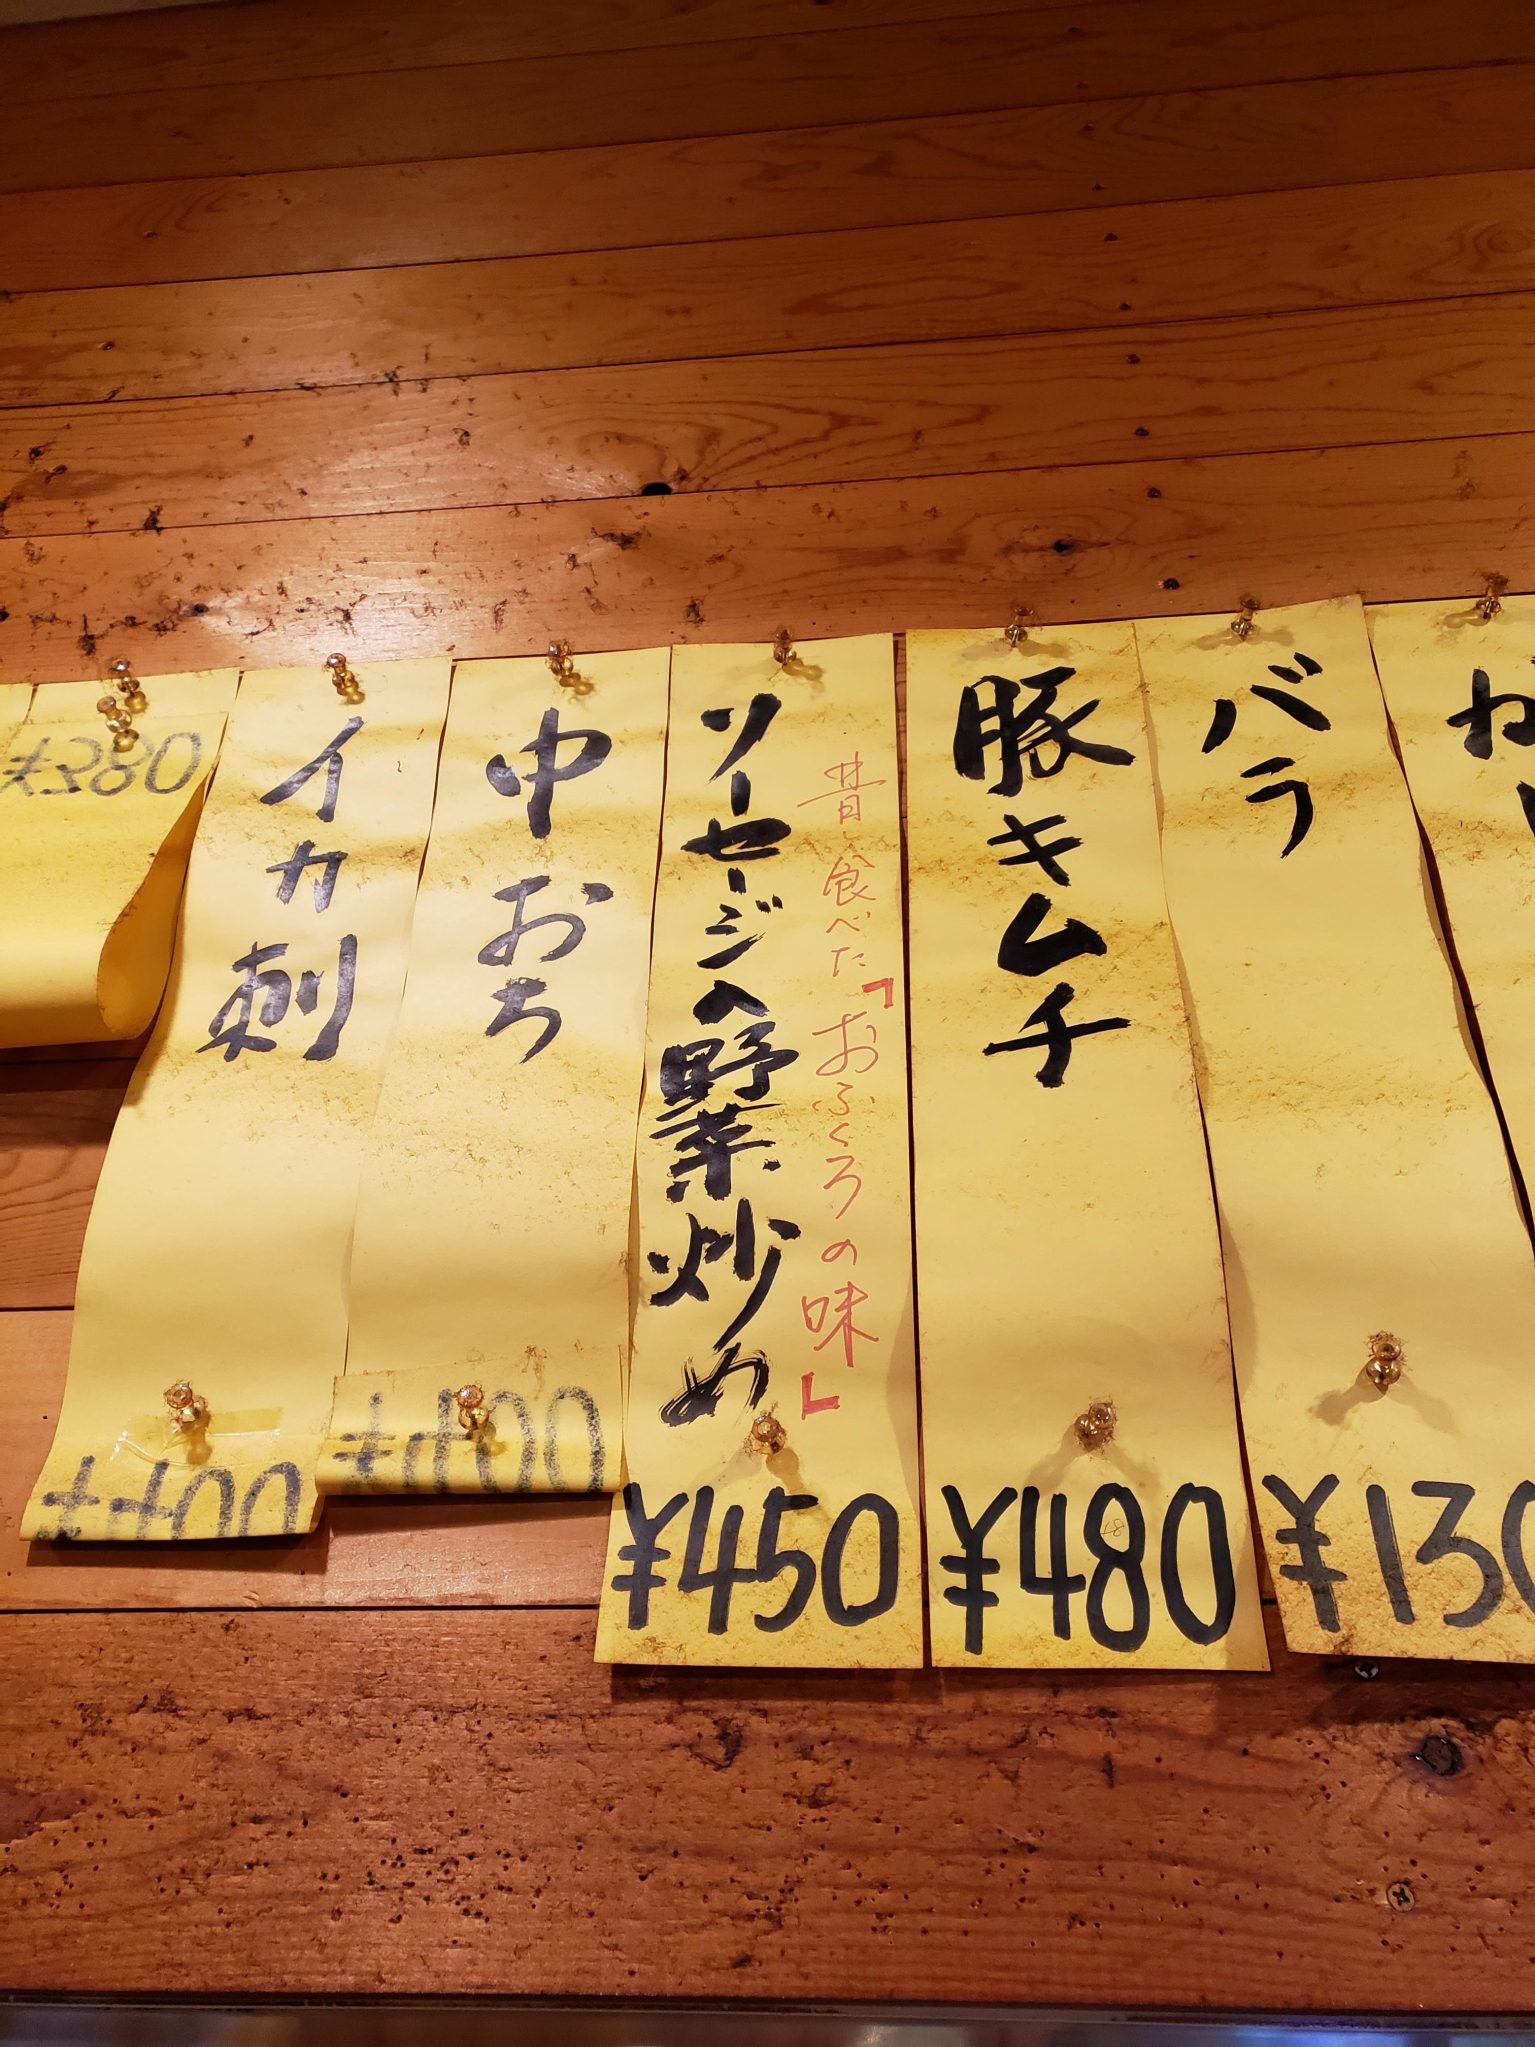 ね
バラ
¥130
豚キムチ
¥480
昔し食べた「おふくろの味」
ソーセージの野菜炒め
¥450
中おち
¥400
イカ刺
¥400
¥380